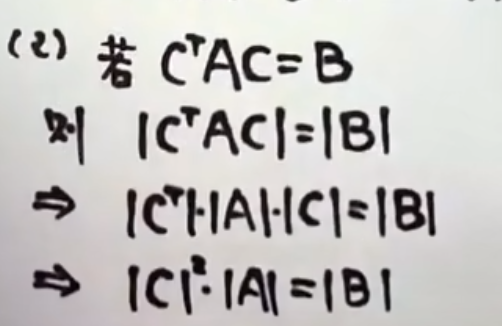 (2) 若 CᵀAC=B
则 |CᵀAC|=|B|
⇒ |Cᵀ|·|A|·|C|=|B|
⇒ |C|²·|A|=|B|